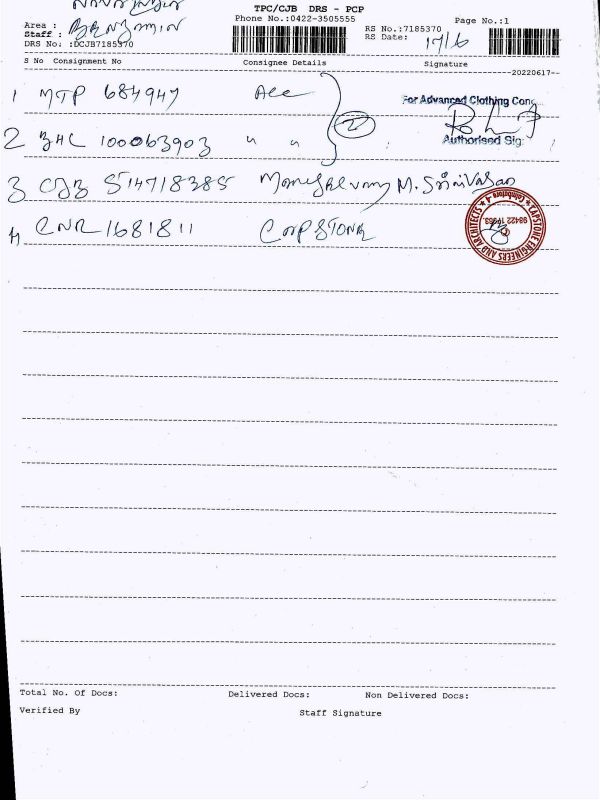 TPC/CJB DRS - PCP
Phone No.:0422-3505555 Page No.:1
Area :
Staff : BENJAMIN
RS No.:7185370
DRS No.:DCJB7185370
RS Date: 17/6
S No Consignment No Consignee Details Signature
--20220617--
1 MTP 684947 ACC
For Advanced Clothing Conc
2 BHC 100063903 " "
2
Authorised Sig
3 CJB 514718385 M. Srinivasan
4 CNR 1681811 CAPSTONE
CAPSTONE ENGINEERS AND ARCHITECTS ★ Coimbatore
Total No. Of Docs: Delivered Docs: Non Delivered Docs:
Verified By Staff Signature